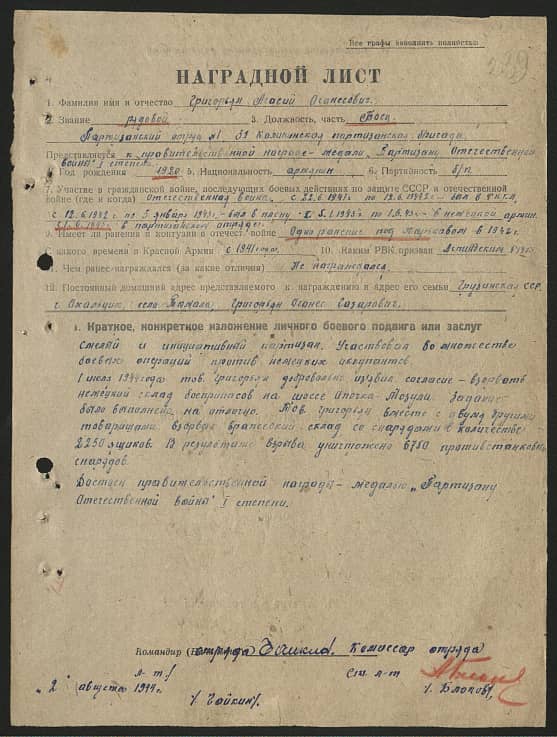 Все графы заполнять полностью
НАГРАДНОЙ ЛИСТ
1. Фамилия имя и отчество Григорьян Агасий Оганесович.
2. Звание рядовой 3. Должность, часть
Партизанский отряд №1 31 Калининская партизанская бригада
Представляется к правительственной награде - медали "Партизану Отечественной
войны" I степени.
4. Год рождения 1920 5. Национальность армянин 6. Партийность б/п
7. Участие в гражданской войне, последующих боевых действиях по защите СССР и отечественной
войне (где и когда) Отечественная война. с 22.6.1941г по 12.6.1942г - был в РККА,
с 12.6.1942 по 5 января 1943г - был в плену с 5.1.1943г по 1.9.43г - в немецкой армии.
в партизанском отряде.
9. Имеет ли ранения и контузии в отечест. войне Одно ранение под Харьковом в 1942г.
С какого времени в Красной Армии с 1941 года. 10. Каким РВК призван
11. Чем ранее награждался (за какие отличия) Не награждался
12. Постоянный домашний адрес представляемого к награждению и адрес его семьи Грузинская ССР.
село Григорьян Оганес
1. Краткое, конкретное изложение личного боевого подвига или заслуг
Смелый и инициативный партизан. Участвовал во множестве
боевых операций против немецких оккупантов.
1 июля 1944 года тов. Григорьян добровольно изъявил согласие - взорвать
немецкий склад боеприпасов на шоссе Опочка-Мозули. Задание
было выполнено на отлично. Тов. Григорьян вместе с двумя другими
товарищами взорвал вражеский склад со снарядами в количестве
2250 ящиков. В результате взрыва уничтожено 6750 противотанковых
снарядов.
Достоин правительственной награды - медалью "Партизану
Отечественной войны" I степени.
Командир отряда Комиссар отряда
л-т Ст. л-т
"2" августа 1944г. / Чайкин /. / Блохов /